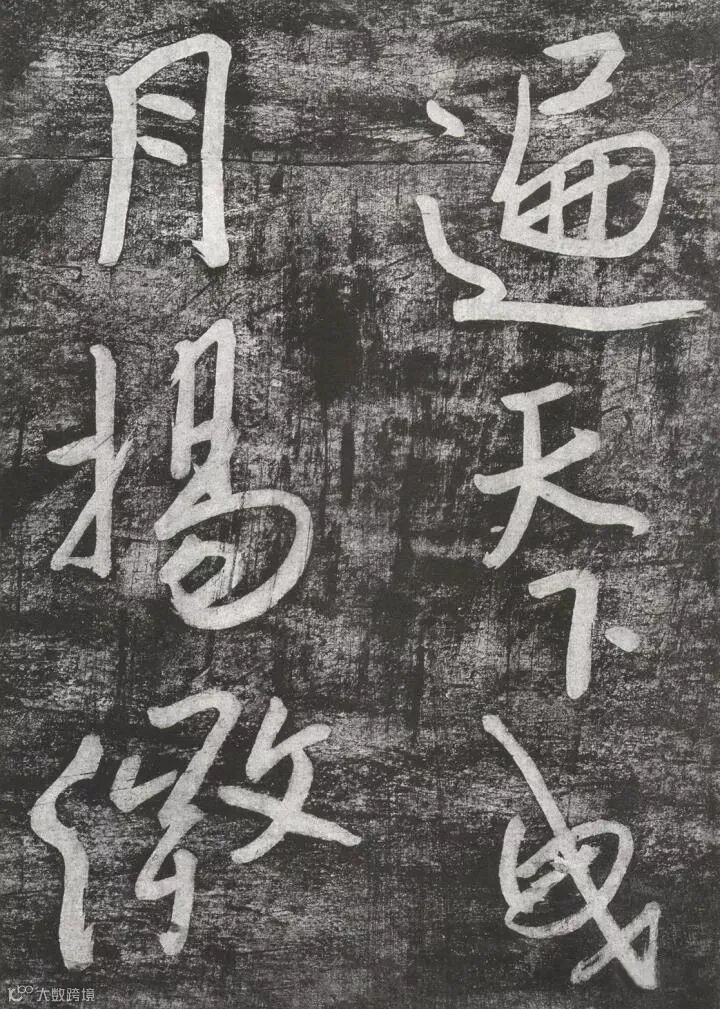 遍天下曳
月揚徽
大数跨境